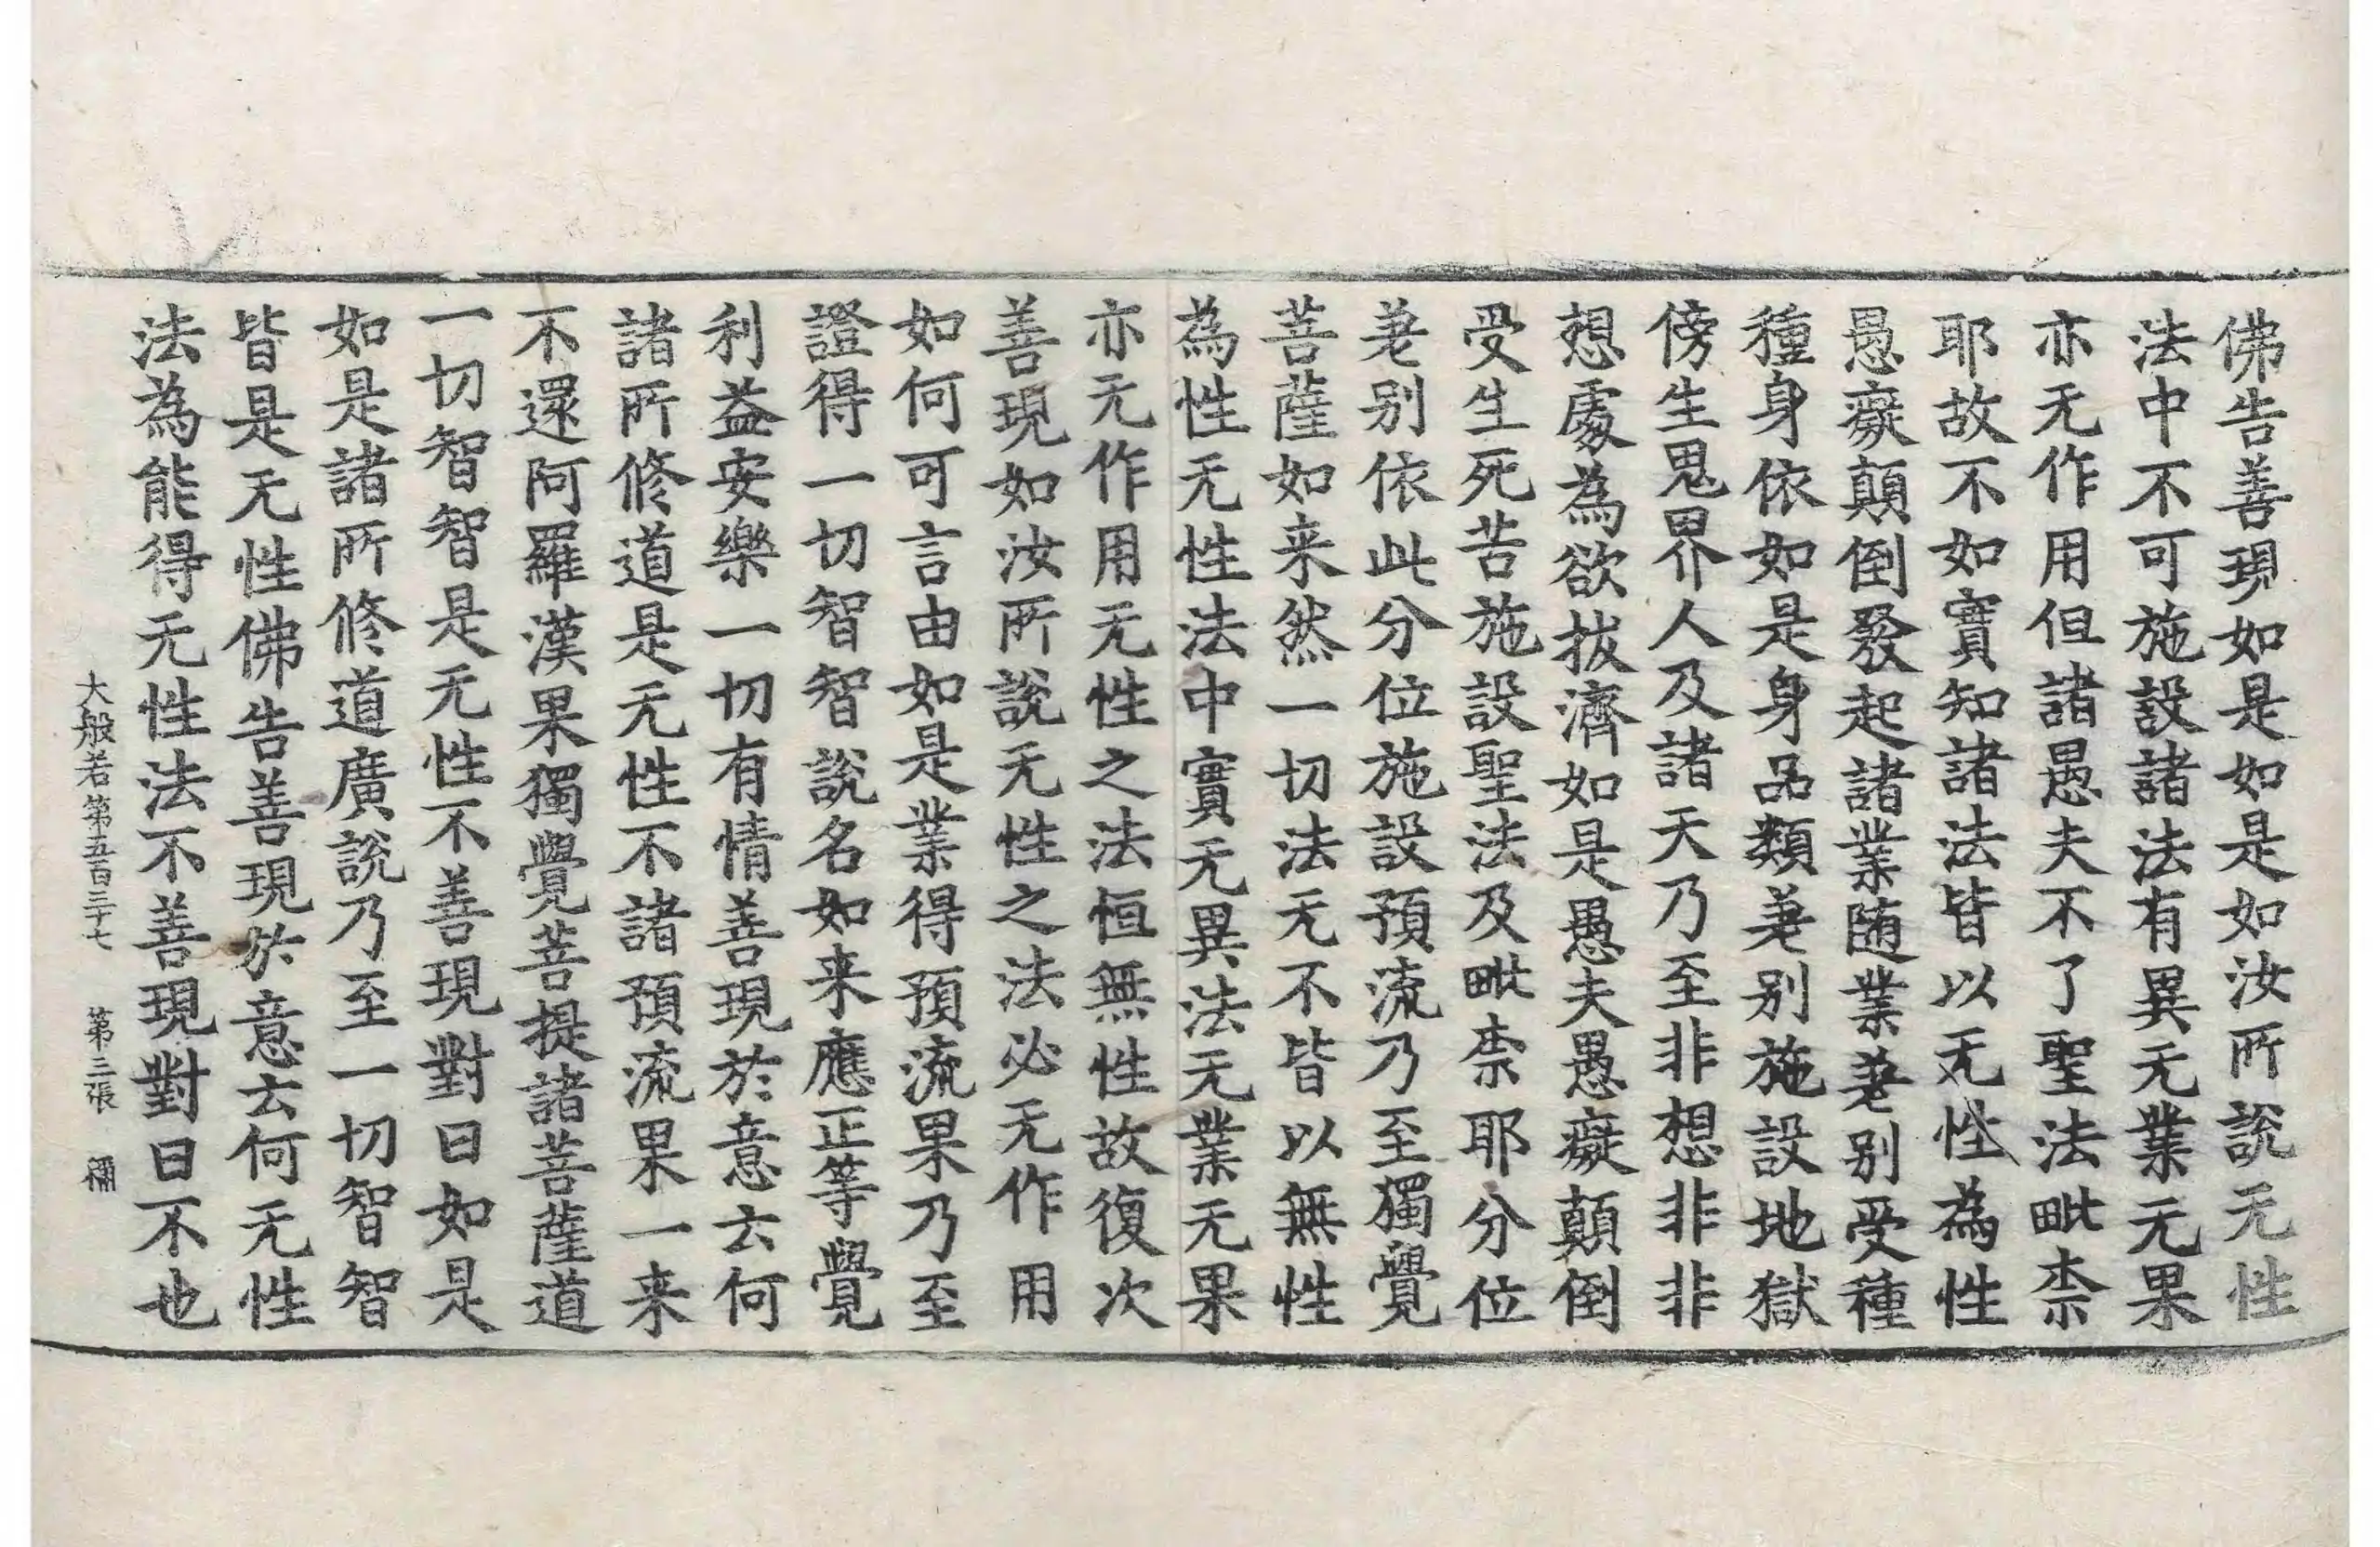 佛告善現如是如是如汝所說无性
法中不可施設諸法有異无業无果
亦无作用但諸愚夫不了聖法毗柰
耶故不如實知諸法皆以无性為性
愚癡顛倒發起諸業随業差别受種
種身依如是身品類差别施設地獄
傍生鬼界人及諸天乃至非想非非
想處為欲拔濟如是愚夫愚癡顛倒
受生死苦施設聖法及毗柰耶分位
差别依此分位施設預流乃至獨覺
菩薩如来然一切法无不皆以無性
為性无性法中實无異法无業无果
亦无作用无性之法恒無性故復次
善現如汝所說无性之法必无作用
如何可言由如是業得預流果乃至
證得一切智智說名如来應正等覺
利益安樂一切有情善現於意云何
諸所修道是无性不諸預流果一来
不還阿羅漢果獨覺菩提諸菩薩道
一切智智是无性不善現對曰如是
如是諸所修道廣說乃至一切智智
皆是无性佛告善現於意云何无性
法為能得无性法不善現對曰不也
大般若第五百三十七 第三張 稱